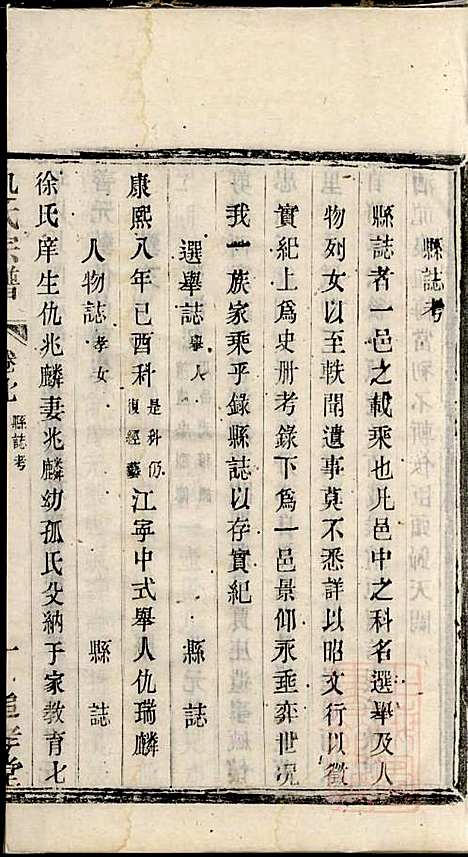 縣誌考
縣誌者一邑之載乘也凡邑中之科名選舉及人
物列女以至軼聞遺事莫不悉詳以昭文行以徵
實紀上爲史册考錄下爲一邑景仰永垂奕世况
我一族家乘乎錄縣誌以存實紀
選舉誌 舉人 縣誌
康熙八年已酉科 是科仍復經藝 江寧中式舉人仇瑞麟
人物誌 孝女 縣誌
徐氏庠生仇兆麟妻兆麟幼孤氏父納于家教育七
仇氏宗譜 卷 縣誌考 一 堂